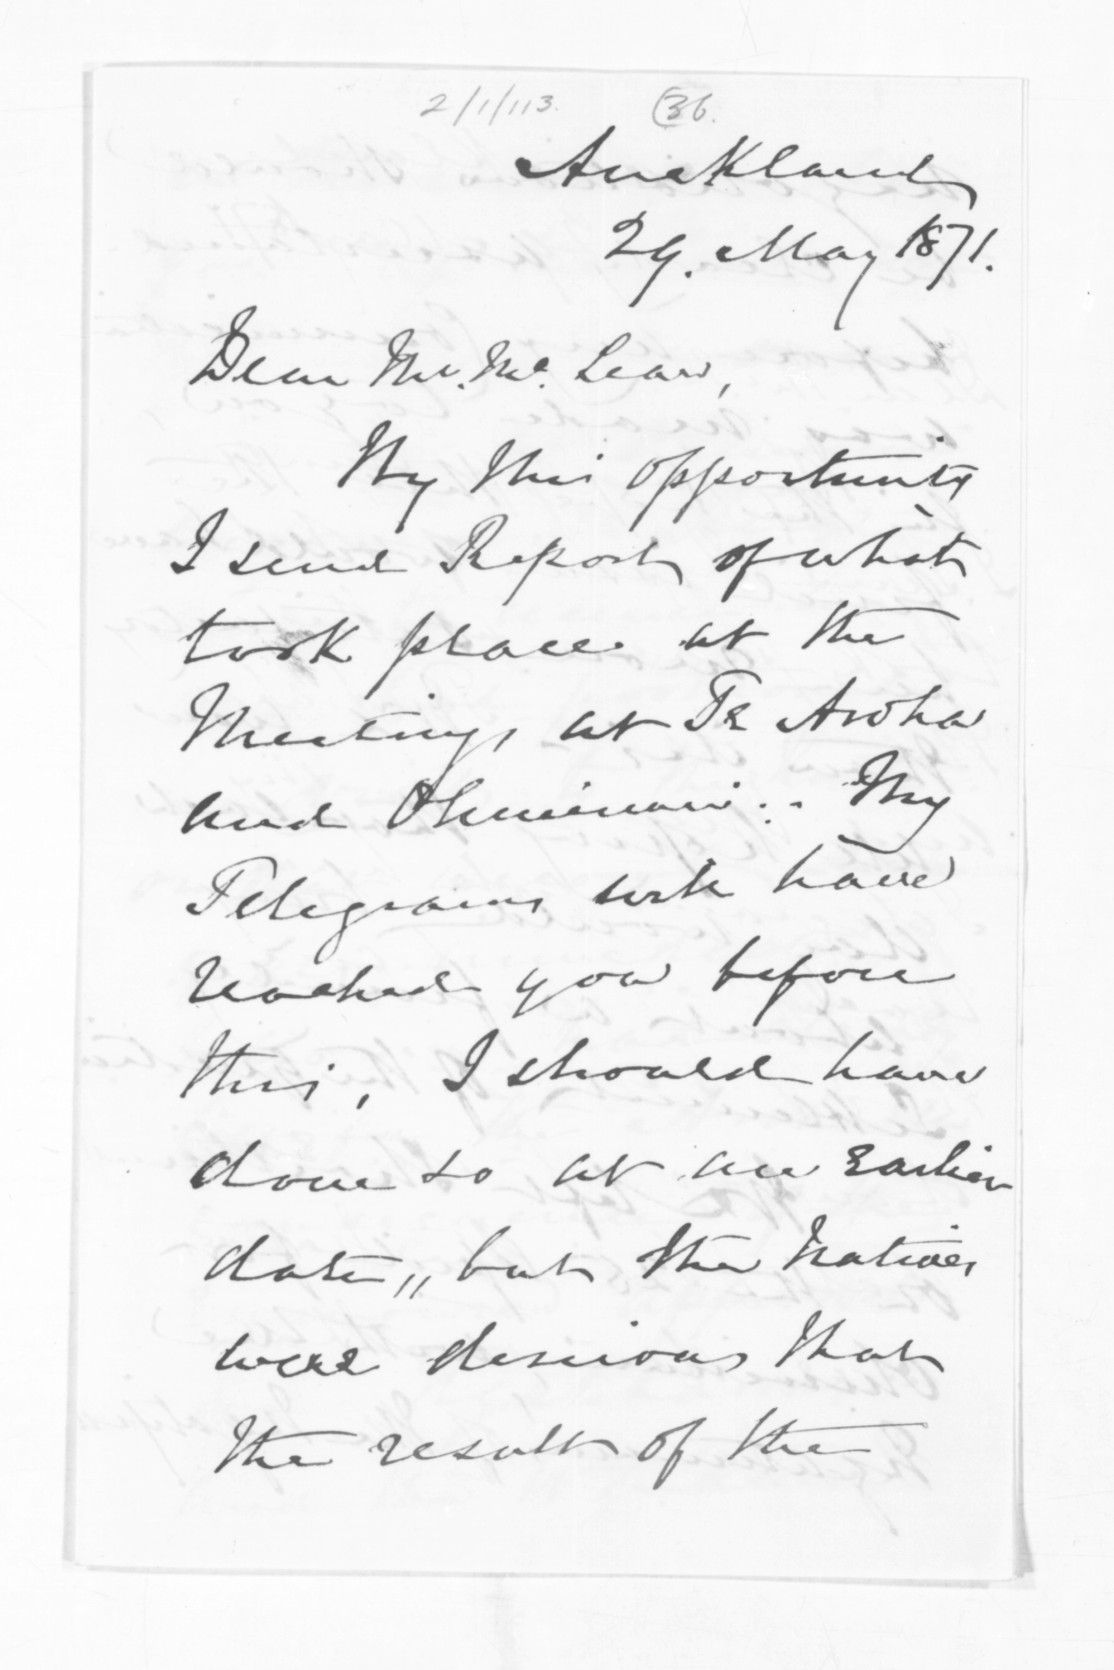 2/1/113. (36.
Auckland
29. May 1871.
Dear Mr. Mc. Lean,
By this opportunity
I send Report of what
took place at the
Meetings at Te Aroha
and Ohinemuri.. My
Telegrams will have
reached you before
this, I should have
done so at an Earlier
date,, but the Natives
were desirous that
the result of the